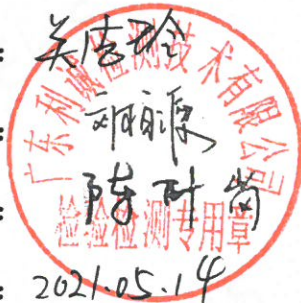 : 关洁玲
:
: 陈耐岗
: 2021.05.14
广东利诚检测技术有限公司
检验检测专用章